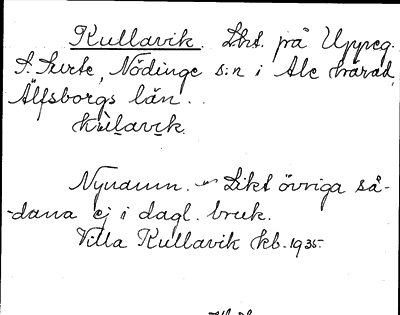 Kullavik. Lht. på Uppeg.
S. Surte, Nödinge s:n i Ale härad,
Älfsborgs län.
kùlavik.
Nynamn. Likt övriga så-
-dana ej i dagl. bruk.
Villa Kullavik kb. 1935-